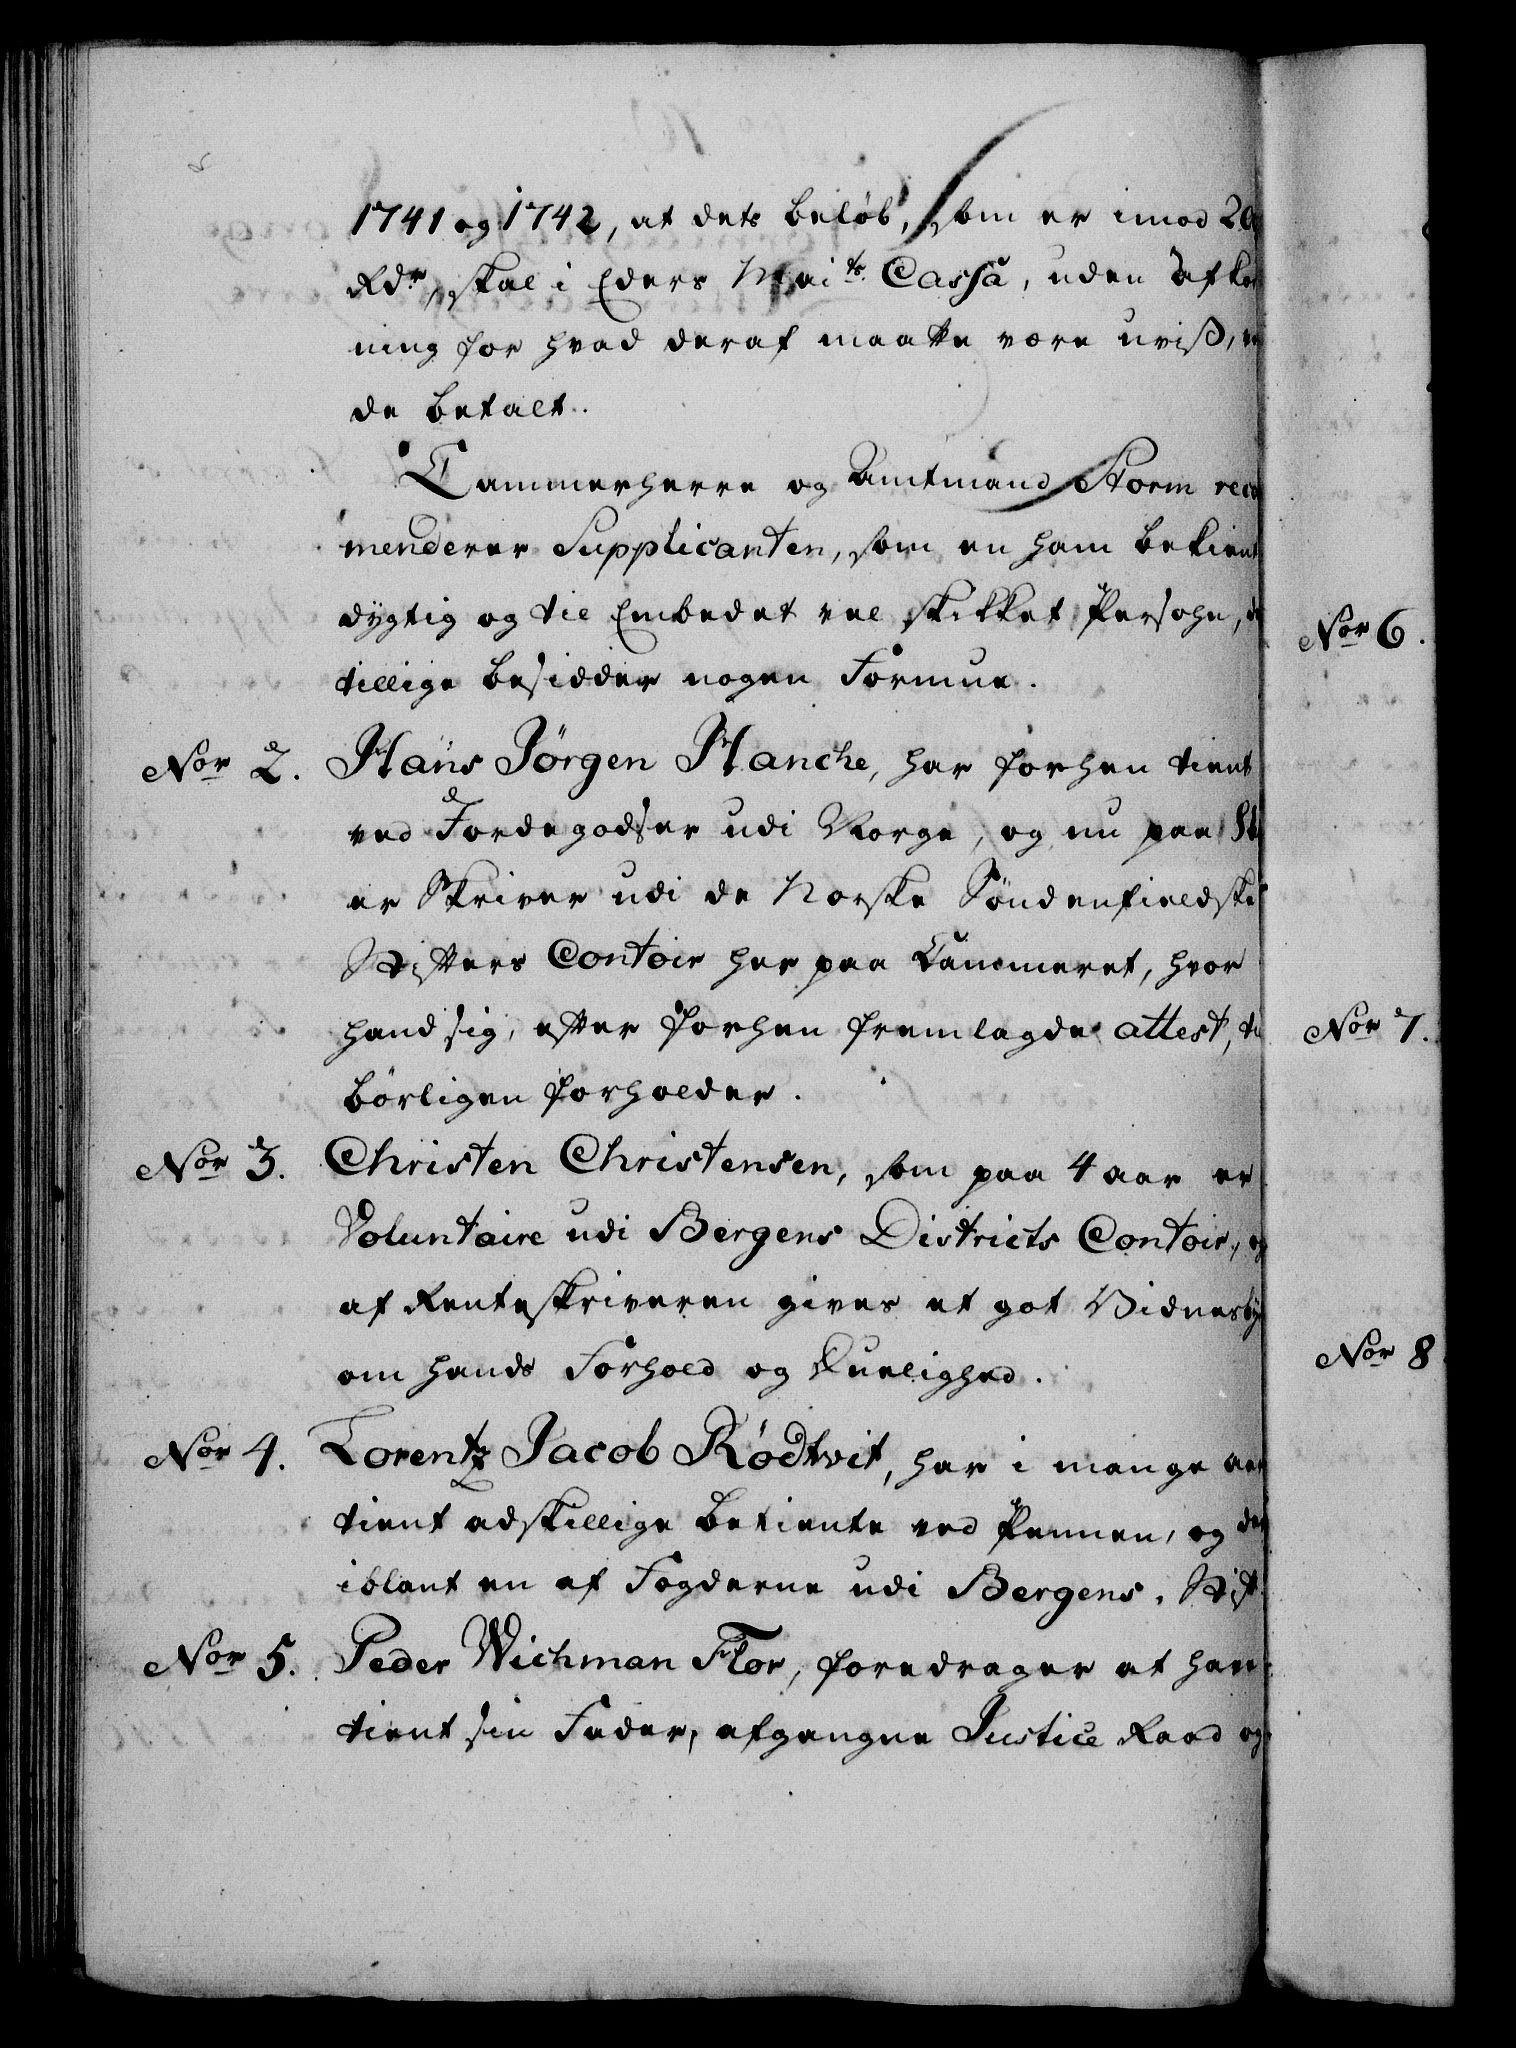 1741 og 1742, at dets beløb, som er imod 20
Rdr, skal i Eders Maits. Cassa, uden Afkor
ning for hvad deraf maatte være uviss,
de betalt.
Cammerherre og Amtmand Storm reco
menderer Supplicanten, som en ham bekient
dygtig og til Embedet vel skikket Persohn,
tillige besidder nogen Formue.
Nor 2. Hans Jörgen Hanche, har forhen tient
ved Jordegodser udi Norge, og nu paa 8te
er Skriver udi de Norske Söndenfieldske
Stifters Contoir her paa Cammeret, hvor
hand sig, efter forhen fremlagde attest, til
börligen forholder.
Nor 3. Christen Christensen, som paa 4 aar er
Voluntaire udi Bergens Districts Contoir, og
af Renteskriveren gives et got Vidnesby
om hands Forhold og Duelighed.
Nor 4. Lorentz Jacob Rödtvit, har i mange aar
tient adskillige betiente ved Pennen, og der
iblant en af Fogderne udi Bergens Stift.
Nor 5. Peder Wichman Flor, foredrager at have
tient sin Fader, afgangne Justice Raad og
Nor 6.
Nor 7.
Nor 8